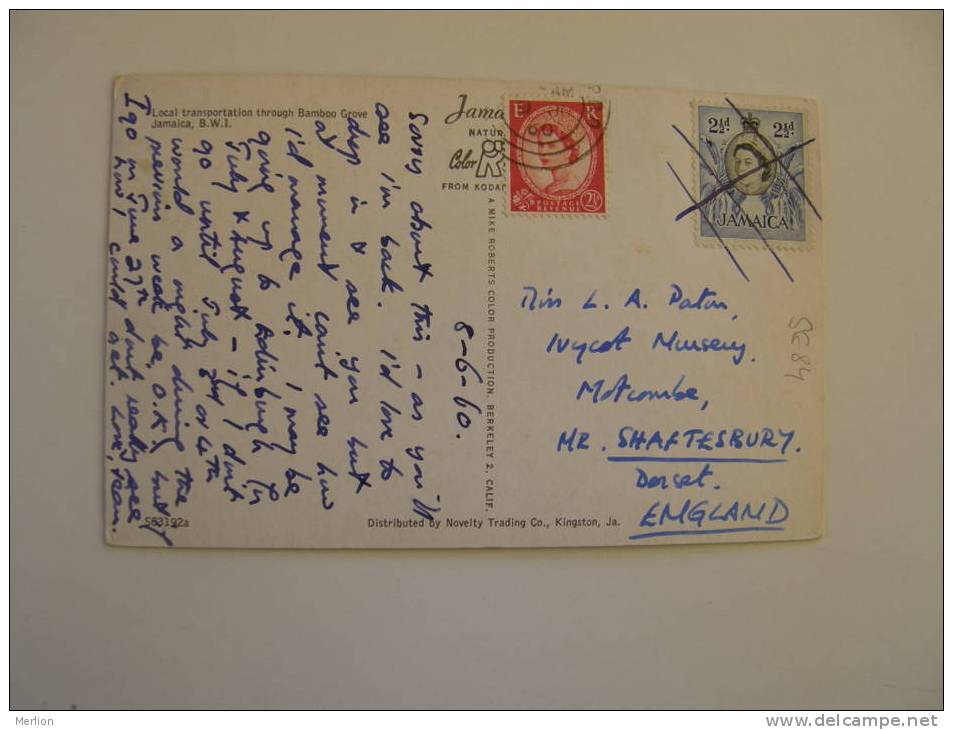 Local transportation through Bamboo Grove
Jamaica, B.W.I.
8-6-60.
Sorry about this - as you'll
see I'm back. I'd love to
drop in & see you but
at moment can't see how
I'd manage it. I may be
going up to Edinburgh in
July & August - if I don't
go until July 3rd or 4th
would a night during the
previous week be O.K. but if
I go on June 27th don't really see
how I could get. Love, Jean.
S83192a
Jama
NATUR
Color
FROM KODA
A MIKE ROBERTS COLOR PRODUCTION. BERKELEY 2, CALIF.
Distributed by Novelty Trading Co., Kingston, Ja.
E R
POSTAGE
REVENUE
2½d
AM
2½d. 2½d.
JAMAICA
Miss L. A. Paton,
Ivycot Nursery,
Motcombe,
Nr. SHAFTESBURY.
Dorset.
ENGLAND
SG84
Merlion
www.delcampe.net